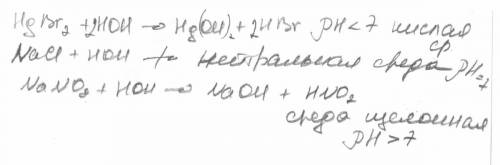 HgBr₂ + 2HOH → Hg(OH)₂ + 2HBr PH < 7 кислая
ср
NaCl + HOH нейтральная среда PH=7
NaNO₂ + HOH → NaOH + HNO₂
среда щелочная
PH > 7